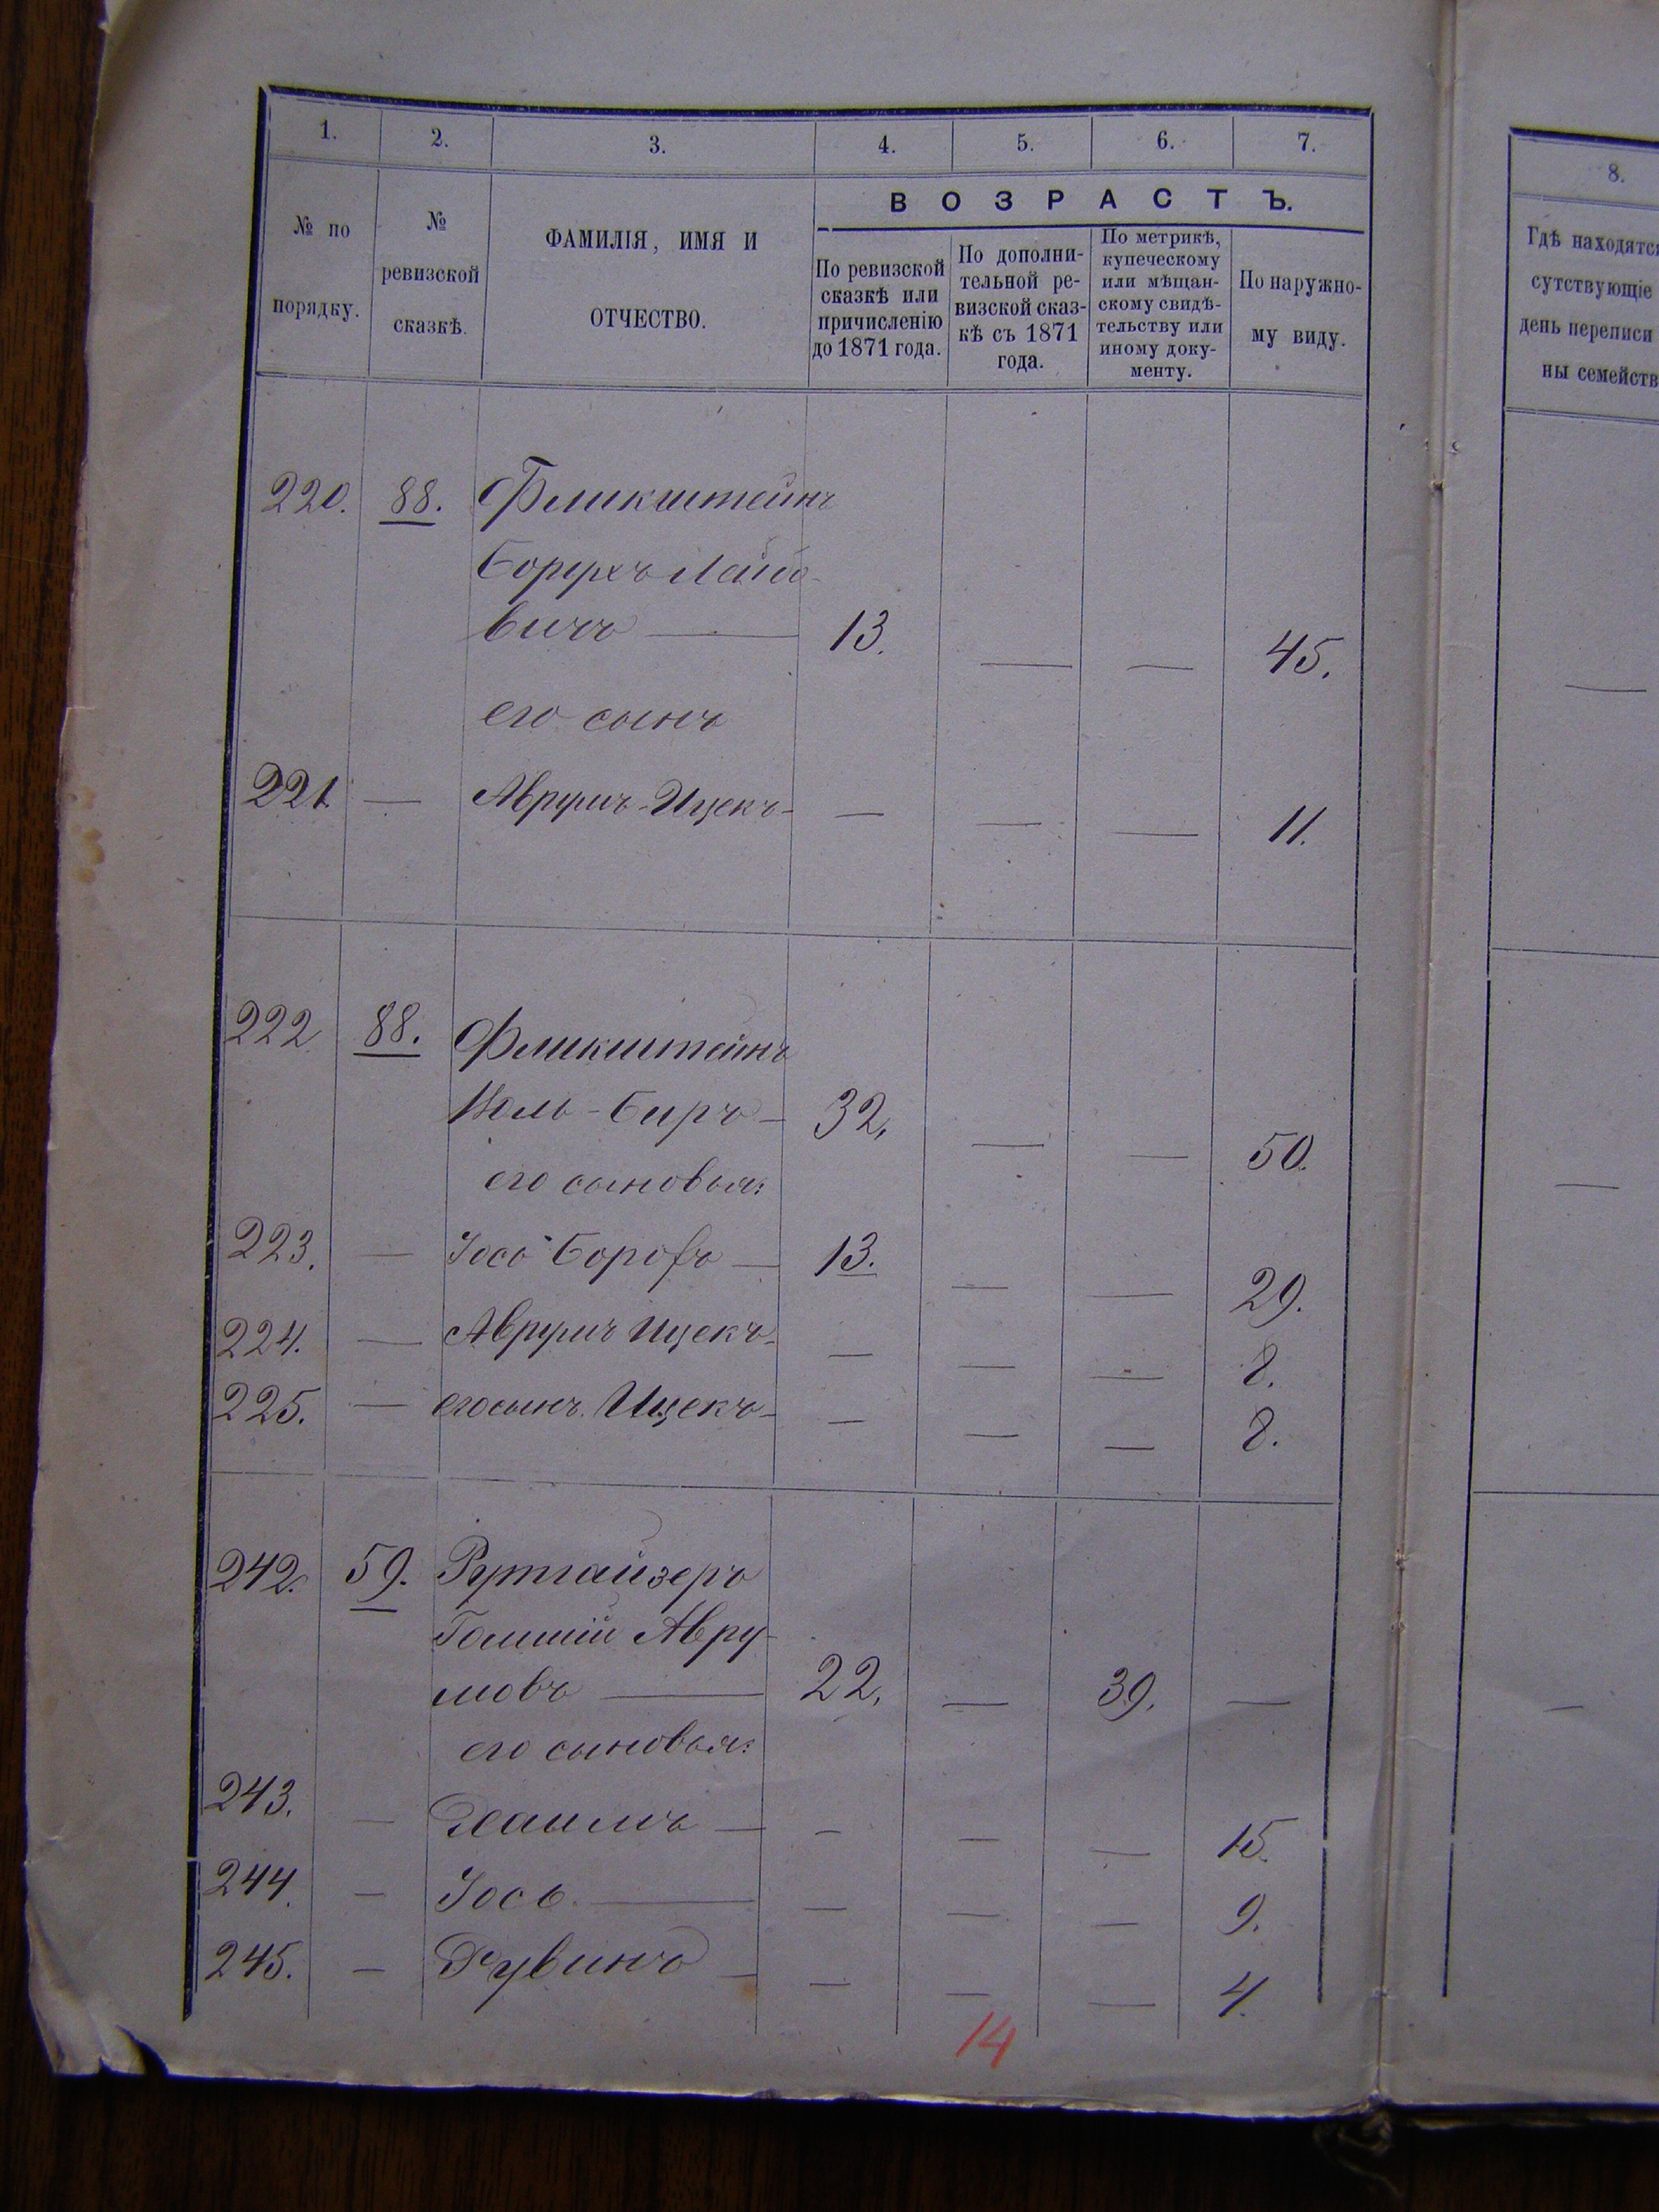 1. 2. 3. 4. 5. 6. 7.
№ по порядку.
№ ревизской сказкѣ.
ФАМИЛІЯ, ИМЯ И ОТЧЕСТВО.
ВОЗРАСТЪ.
По ревизской сказкѣ или причисленію до 1871 года.
По дополнительной ревизской сказкѣ съ 1871 года.
По метрикѣ, купеческому или мѣщанскому свидѣтельству или иному документу.
По наружному виду.
8.
Гдѣ находятся
сутствующіе
день переписи
ны семейств
220. 88. Фликштейнъ
Борухъ Лейбо-
вичъ — 13. — — 45. —
его сынъ
221 — Аврумъ-Ицекъ — — — — 11.
222 88. Фликштейнъ
Биръ — 32. — — 50. —
его сыновья:
223. — Іось — 13. — — 29.
224. — Аврумъ Ицекъ — — — — 8.
225. — его сынъ Ицекъ — — — — 8.
242. 59. Рутгайзеръ
Авру-
мовъ — 22. — 39. — —
его сыновья:
243. — Хаимъ — — — — 15.
244. — Іось — — — — 9.
245. — Рувинъ — — — — 4.
14